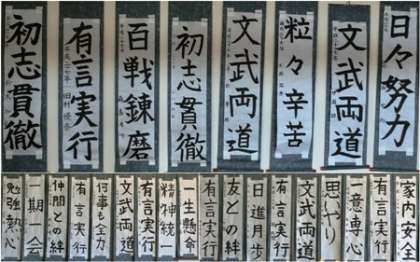 日々努力
文武両道
粒々辛苦
文武両道
初志貫徹
百戦錬磨
有言実行
初志貫徹
家内安全
一意専心
思いやり
文武両道
有言実行
日進月歩
友との絆
有言実行
一生懸命
精神統一
有言実行
文武両道
何事も全力
有言実行
仲間との絆
一期一会
勉強熱心